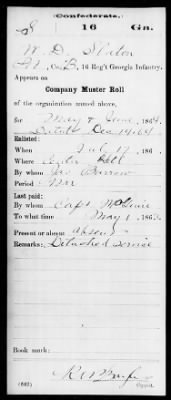 Confederate.
S 16 Ga.
W. D.
Pt, Co. B, 16 Reg't Georgia Infantry.
Appears on
Company Muster Roll
of the organization named above,
for May & June, 1864.
Dated Dec 14, 64
Enlisted:
When July 17, 186 .
Where
By whom Barrow
Period War
Last paid:
By whom Capt McGuire
To what time May 1, 186
Present or absent absent
Remarks: Detached service
Book mark:
(642) Copyist.